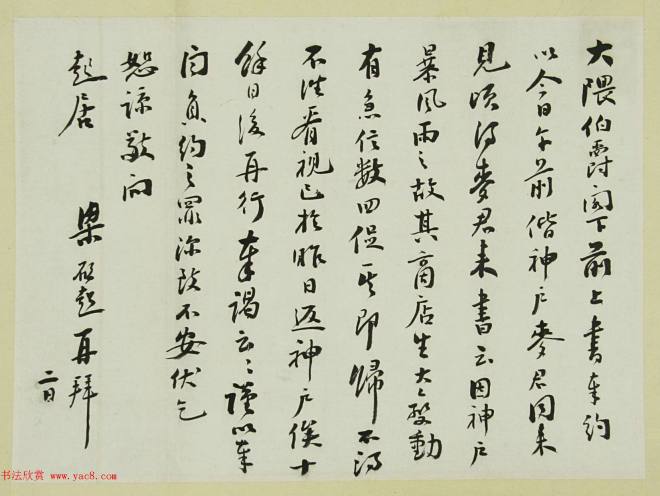 大隈伯爵閣下前上書奉約
以今日午前偕神户麥君同来
見頃得麥君来書云因神户
暴風雨之故其商店生大变動
有急信数四促其即歸不得
不往看視已於昨日返神户俟十
餘日後再行奉謁云云謹以奉
白負約之罪深致不安伏乞
恕諒敬問
起居
梁啟超再拜
二日
书法欣赏 www.yac8.com